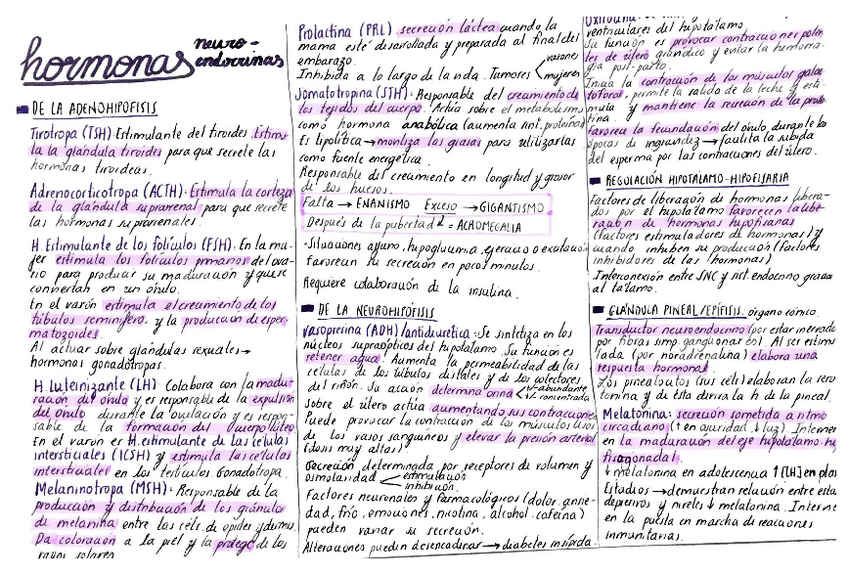 hormonas neuro-
endocrinas
DE LA ADENOHIPÓFISIS
Tirotropa (TSH) Estimulante del tiroides. Estimu-
la la glándula tiroides para que secrete las
hormonas tiroideas.
Adrenocorticotropa (ACTH): Estimula la corteza
de la glándula suprarrenal para que secrete
las hormonas suprarrenales.
H. Estimulante de los folículos (FSH): En la mu-
jer estimula los folículos primarios del ova-
rio para producir su maduración y que se
conviertan en un óvulo.
En el varón estimula el crecimiento de los
túbulos seminífero, y la producción de esper-
matozoides.
Al actuar sobre glándulas sexuales→
hormonas gonadotropas.
H. Luteinizante (LH) Colabora con la madu-
ración del óvulo y es responsable de la expulsión
del óvulo durante la ovulación y es respon-
sable de la formación del cuerpo lúteo
En el varón es H. estimulante de las células
intersticiales (ICSH) y estimula las células
intersticiales en los testículos. Gonadotropa.
Melaninotropa (MSH): Responsable de la
producción y distribución de los gránulos
de melanina entre las céls. de epider. y dermis.
Da coloración a la piel y la protege de los
rayos solares
Prolactina (PRL) secreción láctea cuando la
mama esté desarrollada y preparada al final del
embarazo.
Inhibida a lo largo de la vida. Tumores varones
mujeres
Somatotropina (STH): Responsable del crecimiento de
los tejidos del cuerpo. Actúa sobre el metabolismo
como hormona anabólica (aumenta sínt. proteínas)
Es lipolítica → moviliza las grasas para utilizarlas
como fuente energética.
Responsable del crecimiento en longitud y grosor
de los huesos.
Falta → ENANISMO Exceso → GIGANTISMO
Después de la pubertad = ACROMEGALIA
·Situaciones ayuno, hipoglucemia, ejercicio o excitación
favorecen su secreción en pocos minutos.
Requiere colaboración de la insulina.
DE LA NEUROHIPÓFISIS
Vasopresina (ADH)/antidiurética: Se sintetiza en los
núcleos supraópticos del hipotálamo. Su función es
retener agua. Aumenta la permeabilidad de las
células de los túbulos distales y de los colectores
del riñón. Su acción determina orina +/- abundante
+/- concentrada
Sobre el útero actúa aumentando sus contracciones
Puede provocar la contracción de los músculos lisos
de los vasos sanguíneos y elevar la presión arterial
(dosis muy altas)
Secreción determinada por receptores de volumen y
osmolaridad estimulación
inhibición.
Factores neuronales y farmacológicos (dolor, ansie-
dad, frío, emociones, nicotina, alcohol, cafeína)
pueden variar su secreción.
Alteraciones pueden desencadenar → diabetes insípida.
Oxitocina:
ventriculares del hipotálamo.
Su función es provocar contracciones poten-
tes de útero grávídico y evitar la hemorra-
gia post-parto.
Inicia la contracción de los músculos galac-
tóforos, permite la salida de la leche y esti-
mula y mantiene la secreción de la prolac-
tina.
Favorece la fecundación del óvulo, durante las
épocas de ingravidez → facilita la subida
del esperma por las contracciones del útero.
REGULACIÓN HIPOTALAMO-HIPOFISARIA
Factores de liberación de hormonas (libera-
dos por el hipotálamo) favorecen la libe-
ración de hormonas hipofisarias
(factores estimuladores de hormonas) y
cuando inhiben su producción (factores
inhibidores de las hormonas)
Interconexión entre SNC y sist. endocrino gracias
al tálamo.
GLÁNDULA PINEAL/EPÍFISIS. órgano cónico.
Transductor neuroendocrino (por estar inervado
por fibras simp. ganglionar bol. Al ser estimu
lada (por noradrenalina) elabora una
respuesta hormonal
Los pinealocitos (sus céls) elaboran la sero
tonina y de ésta deriva la h de la pineal.
Melatonina: secreción sometida a ritmo
circadiano (↑ en oscuridad ↓ luz). Intervien
en la maduración del eje hipotálamo-hi
fisogonadal.
↓ melatonina en adolescencia ↑ (LH) en plas
Estudios → demuestran relación entre esta
depresivos y niveles ↓ melatonina. Intervie
en la puesta en marcha de reacciones
inmunitarias.